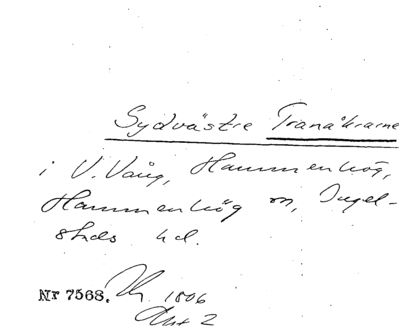 Sydvästre Tranåkrarne
i V. Vång, Hammenhög,
Hammenhög sn, Ingel-
stads hd.
Nr 7568. 1806
Akt 2